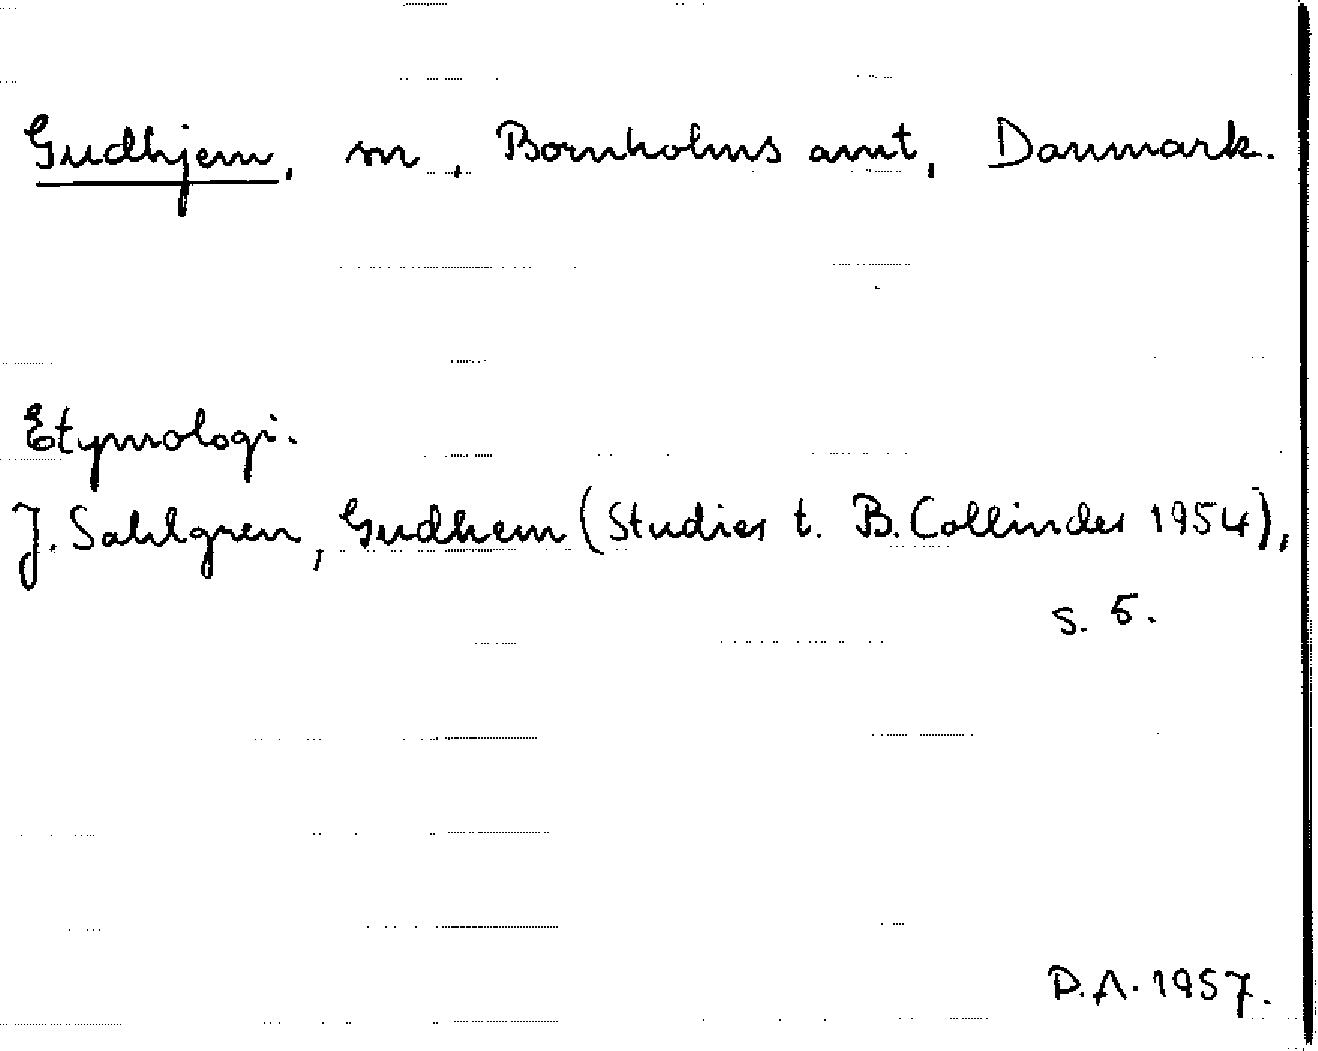 Gudhjem, sn, Bornholms amt, Danmark.
Etymologi.
J. Sahlgren, Gudhem (Studier t. B. Collinder 1954),
s. 5.
D.A. 1957.